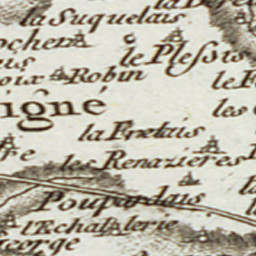 la Suquelais
ochera
le Plessis
oix Robin
le F
igné
les
la Fretais
re
les Renazieres
Poupardais
l'Echallerie
George